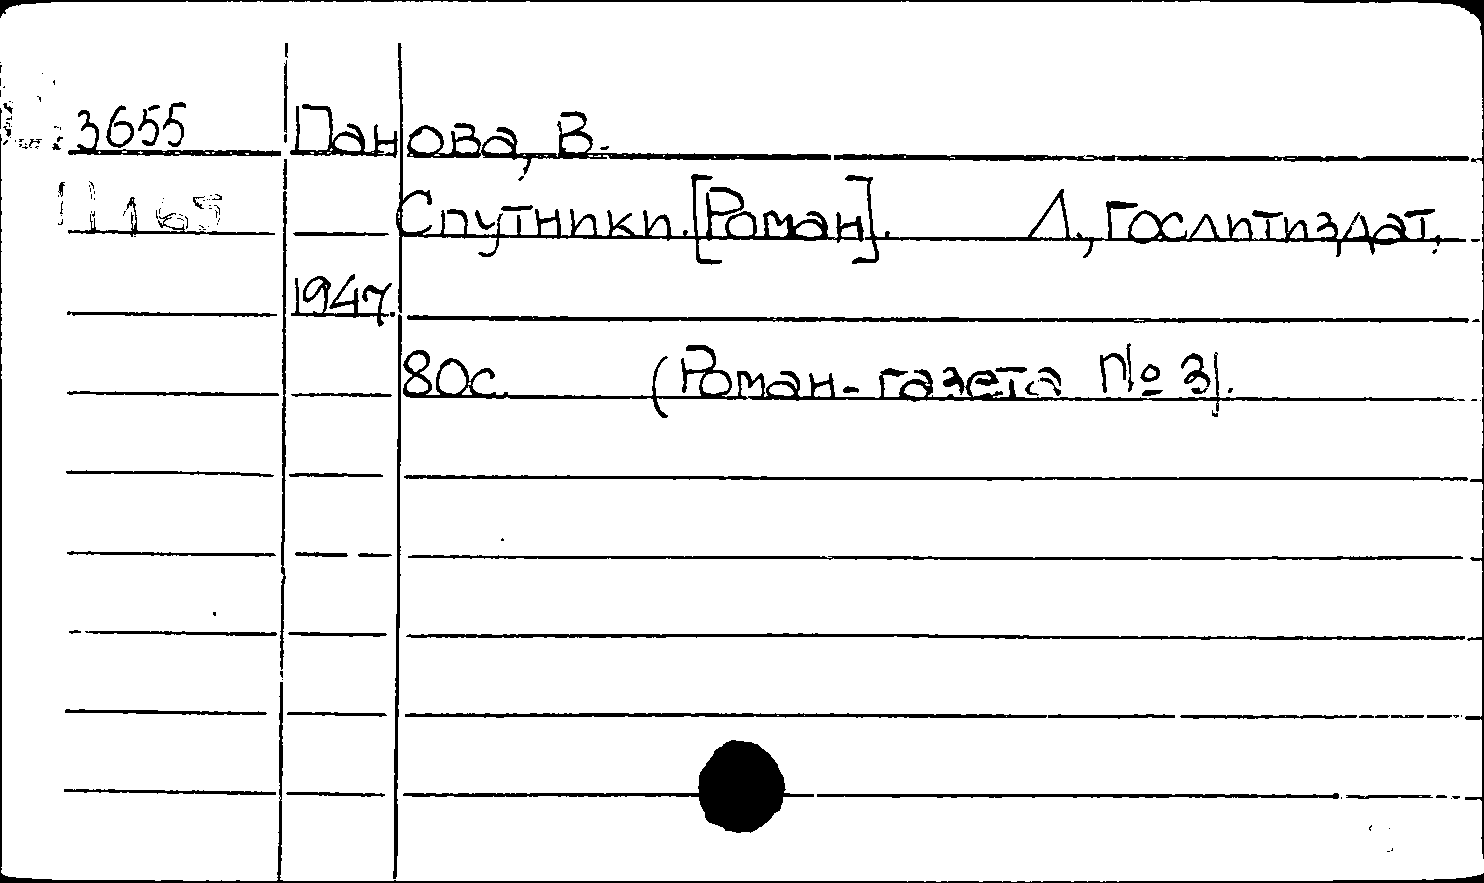 3655 Панова, В.
П 165 Спутники. [Роман]. Л., Гослитиздат,
1947.
80с. (Роман-газета № 3).